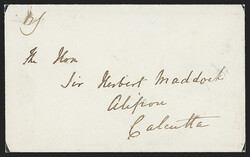 The Hon
Sir Herbert Maddock
Alipore
Calcutta